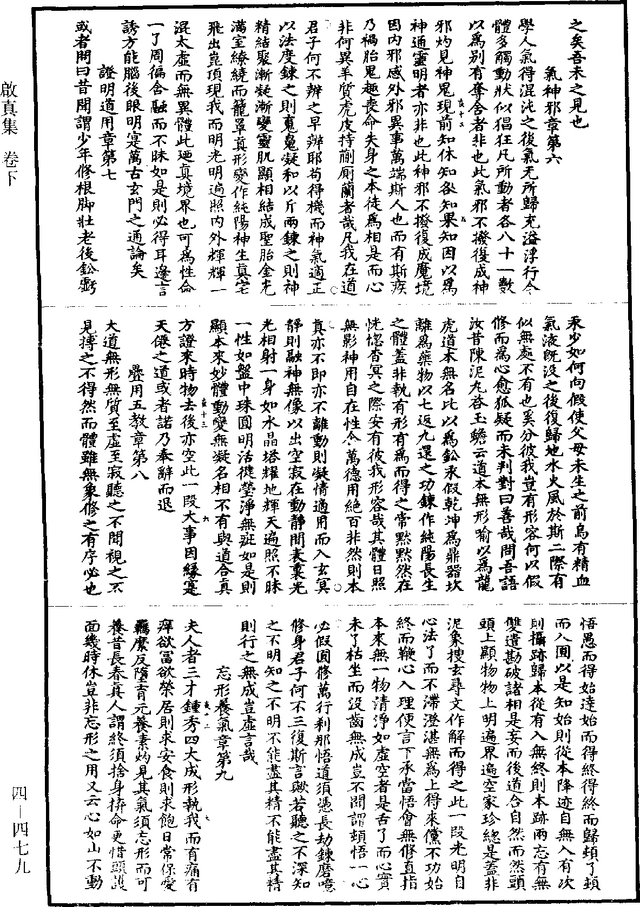 之矣吾未之見也
氣神邪章第六
學人氣得混沌之後氣无所歸充溢浮行令
體多觸動狀似猖狂凡所動者各八十一數
以為別有奪舍者非也此氣邪不撥復成神
邪灼見神鬼現前知休知咎知果知因以為
神通靈明者亦非也此神邪不撥復成魔境
因内邪感外邪異事萬端斯人也而有斯疾
乃禍胎鬼趣喪命失身之本徒為相是而心
非何異羊質虎皮持蘭蘭者哉凡我在道
君子何不辨之早辨耶苟得機而神氣適正
以法度鍊之則鬼魄凝和以斤兩鍊之則神
精結聚漸凝漸變靈肌顯相結成聖胎金光
滿室繚繞而籠罩真形變作純陽神生真宅
飛出崑頂現我而明光明遍照内外輝輝一
混太虛而無異體此廼真境界也可為性命
一了周徧含融而不昧如是則必得耳邊言
誘方能腦後眼明寔萬古玄門之通論矣
證明道用章第七
或者問曰昔聞謂少年修根脚壯老後鈆虧
汞少如何向假使父母未生之前烏有精血
氣液旣没之後復歸地水火風於斯二際有
似無處不有也奚分彼我豈有形容何以假
修而為心愈狐疑而未判對曰善哉問吾語
汝昔陳泥丸咨玉蟾云道本無形喻以為龍
虎道本無名比以為鈆汞假乾坤為鼎器坎
離為藥物以七返九還之功鍊作純陽長生
之體蓋非執有形有為而得之常默默然在
恍惚杳冥之際安有彼我形容哉其體日照
無影神用自在性令萬德用絕百非然則本
真亦不即亦不離動則凝情適用而入玄冥
靜則融神無像以出空寂在動靜間表裏光
光相射一身如水晶塔耀地輝天遍照不昧
一性如盤中珠圓明活樾瑩淨無斑如是則
顯本來妙體動變無凝名相不有與道合真
方證來時物去後亦空此一段大事因緣寔
天僊之道或者諾乃奉辭而退
疊用五教章第八
大道無形無質至虛至寂聽之不聞視之不
見搏之不得然而體雖無象修之有序必也
悟愚而得始達始而得終得終而歸頓了頓
而入圓以是知始則從本降迹自無入有次
則攝跡歸本從有入無終則本跡兩忘有無
雙遣勘破諸相是妄而後道合自然而然頭
頭上顯物物上明遍界遍空家珍總是蓋非
泥象搜玄尋文作解而得之此一段光明自
心法了而不滯澄湛無為上得來儻不功始
終而鞭心入理便言下承當悟會無修直指
本來無一物清淨如虛空者是舌了而心實
未了枯坐而没齒無成豈不聞謂頓悟一心
必假圓修萬行刹那悟道須憑長劫鍊磨噫
修身君子何不三復斯言歟若聽之不深知
之不明知之不明不能盡其精不能盡其精
則行之無成豈虛言哉
忘形養氣章第九
夫人者三才鍾秀四大成形執我而有痛有
癢欲冨欲榮居則求安食則求飽日常保愛
羈縻反隳育元養素灼見其氣須忘形而可
養昔長春真人謂終須捨身捹命更惜頭護
面幾時休豈非忘形之用又云心如山不動
啟真集 卷下
四—四七九